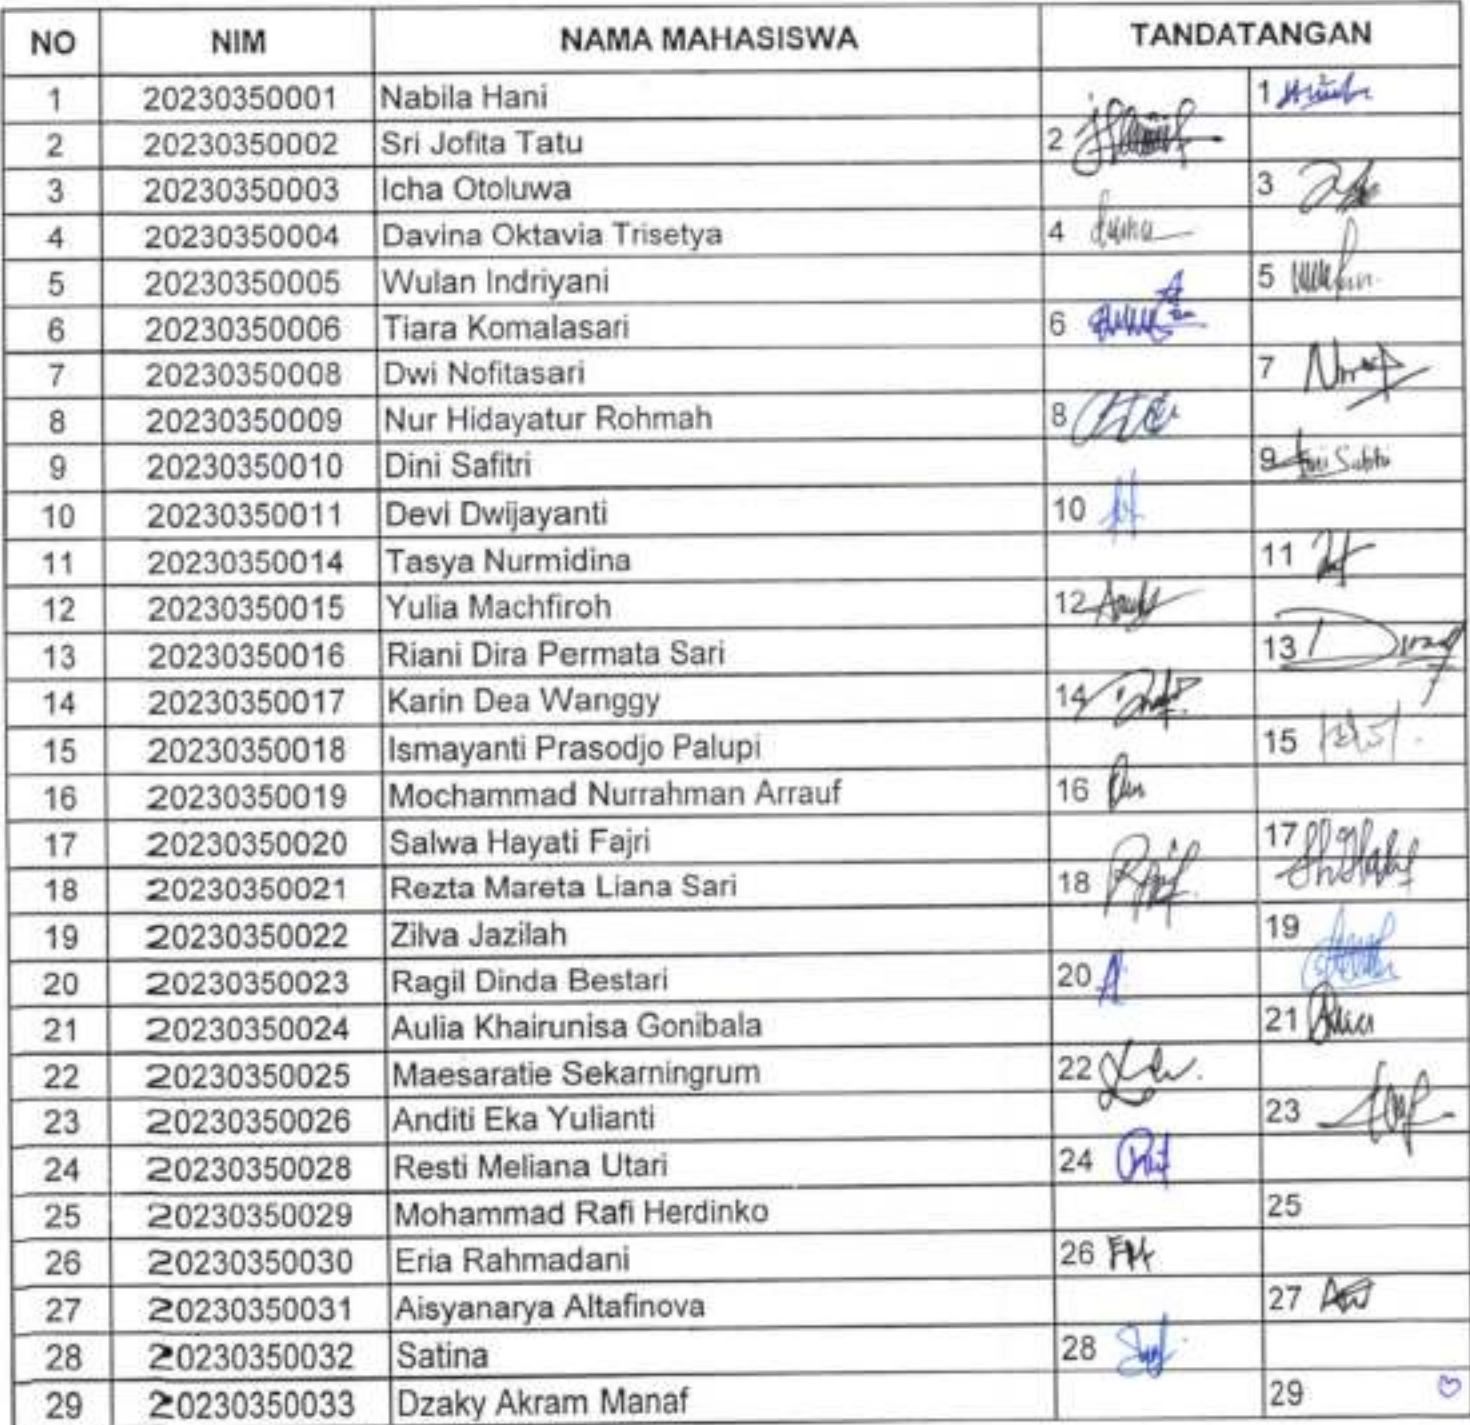 NO NIM NAMA MAHASISWA TANDATANGAN
1 20230350001 Nabila Hani 1
2 20230350002 Sri Jofita Tatu 2
3 20230350003 Icha Otoluwa 3
4 20230350004 Davina Oktavia Trisetya 4
5 20230350005 Wulan Indriyani 5
6 20230350006 Tiara Komalasari 6
7 20230350008 Dwi Nofitasari 7
8 20230350009 Nur Hidayatur Rohmah 8
9 20230350010 Dini Safitri 9
10 20230350011 Devi Dwijayanti 10
11 20230350014 Tasya Nurmidina 11
12 20230350015 Yulia Machfiroh 12
13 20230350016 Riani Dira Permata Sari 13
14 20230350017 Karin Dea Wanggy 14
15 20230350018 Ismayanti Prasodjo Palupi 15
16 20230350019 Mochammad Nurrahman Arrauf 16
17 20230350020 Salwa Hayati Fajri 17
18 20230350021 Rezta Mareta Liana Sari 18
19 20230350022 Zilva Jazilah 19
20 20230350023 Ragil Dinda Bestari 20
21 20230350024 Aulia Khairunisa Gonibala 21
22 20230350025 Maesaratie Sekarningrum 22
23 20230350026 Anditi Eka Yulianti 23
24 20230350028 Resti Meliana Utari 24
25 20230350029 Mohammad Rafi Herdinko 25
26 20230350030 Eria Rahmadani 26
27 20230350031 Aisyanarya Altafinova 27
28 20230350032 Satina 28
29 20230350033 Dzaky Akram Manaf 29